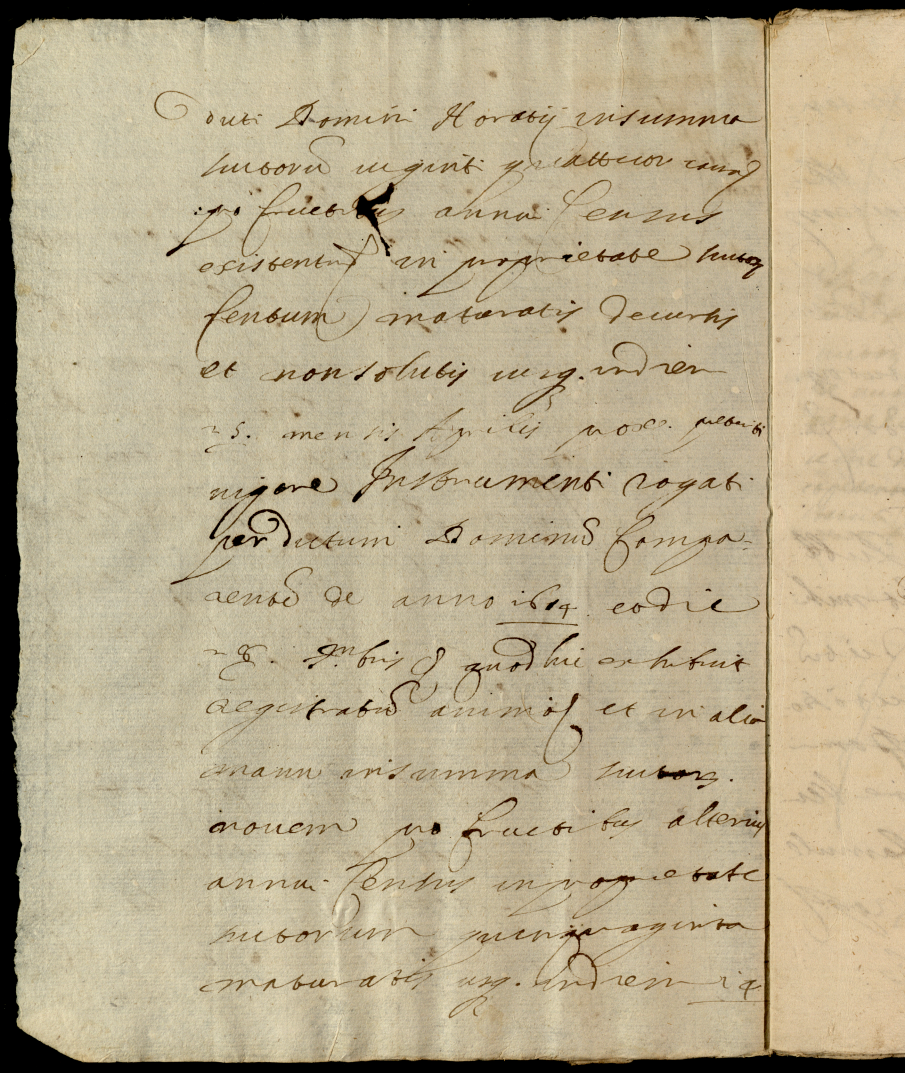 dicti Domini Horatij in summa
scutorũ viginti quattuor
pro fructibus annui Census
existentis in proprietate scutor
Centum maturatis decursis
et non solutis usq. in diem
25. mensis Aprilis prox. preteriti
vigore Instrumenti rogati
per dictum Dominũ Compa-
rentẽ de anno 1614 eo die
28. quod hic exhibuit
registratũ et in alia
manu in summa scutor.
novem pro fructibus alterius
annui Census in proprietate
scutorum quinquaginta
maturatis usq. in diem 14